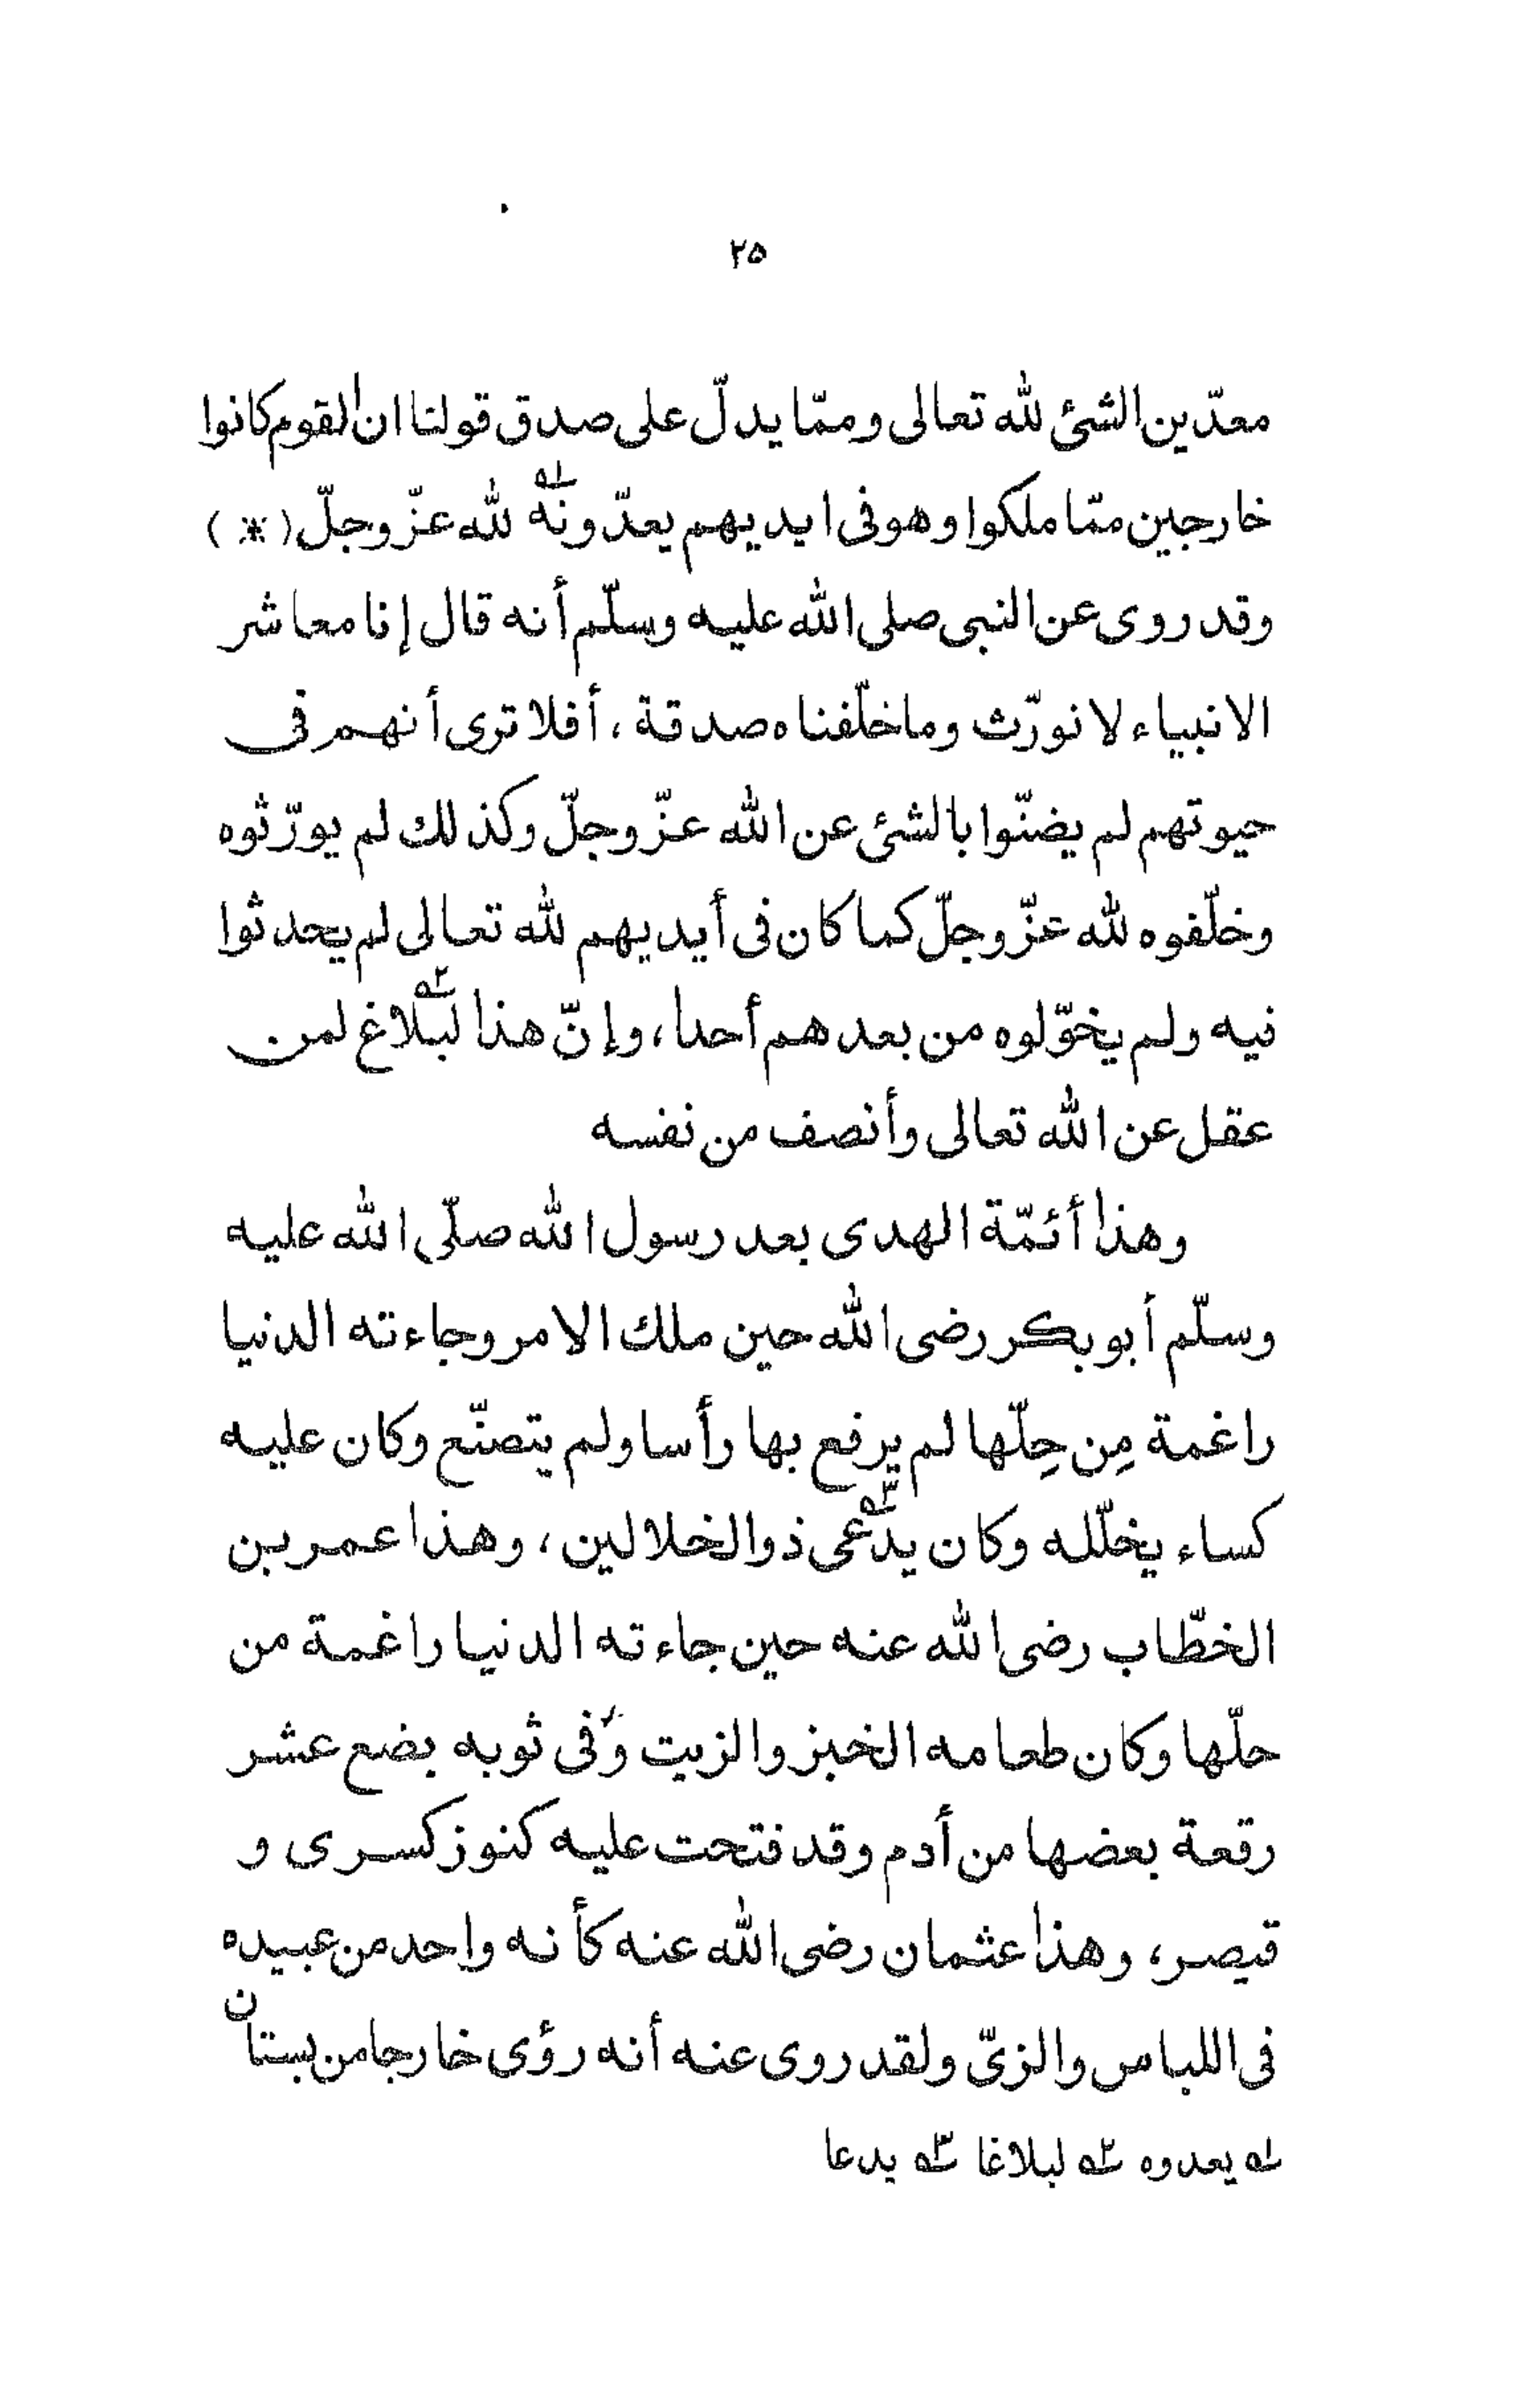 ٢٥
معدّين الشئ لله تعالى وممّا يدلّ على صدق قولنا ان القوم كانوا
خارجين ممّا ملكوا وهو فى ايديهم يعدّونه١ لله عزّ وجلّ (*)
وقد روى عن النبى صلى الله عليه وسلّم أنه قال إنا معاشر
الانبياء لا نورّث وما خلّفناه صدقة، أفلا ترى أنهم فى
حيوتهم لم يضنّوا بالشئ عن الله عزّ وجلّ وكذلك لم يورّثوه
وخلّفوه لله عزّ وجلّ كما كان فى أيديهم لله تعالى لم يحدثوا
فيه ولم يخوّلوه من بعدهم أحدا، وإنّ هذا لبلاغ٢ لمن
عقل عن الله تعالى وأنصف من نفسه
وهذا أئمّة الهدى بعد رسول الله صلّى الله عليه
وسلّم أبو بكر رضى الله حين ملك الامر وجاءته الدنيا
راغمة مِن حِلّها لم يرفع بها رأسا ولم يتصنّع وكان عليه
كساء يخلّله وكان يدّعى٣ ذو الخلالين، وهذا عمر بن
الخطّاب رضى الله عنه حين جاءته الدنيا راغمة من
حلّها وكان طعامه الخبز والزيت وفى ثوبه بضع عشر
رقعة بعضها من أدم وقد فتحت عليه كنوز كسرى و
قيصر، وهذا عثمان رضى الله عنه كأنه واحد من عبيده
فى اللباس والزىّ ولقد روى عنه أنه رؤى خارجا من بستان
١ه يعدوه ٢ه لبلاغا ٣ه يدعا